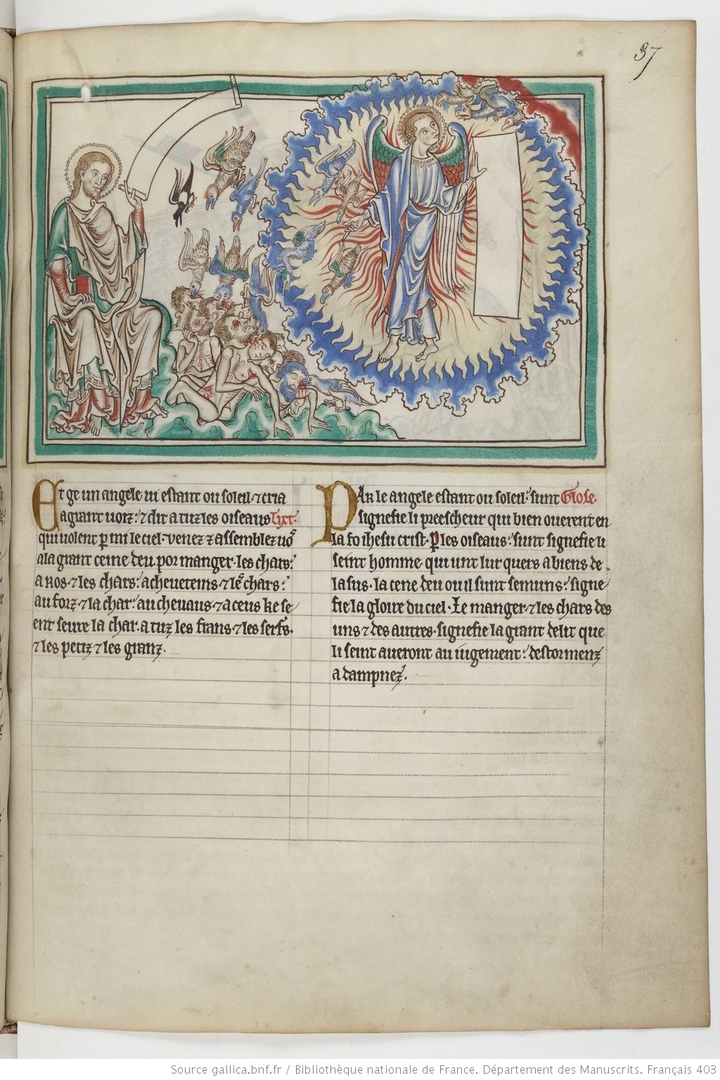 37
Et ge un angele ui estant ou soleil· ⁊ cria
a grant uoiz: ⁊ dit a tuz les oiseaus Tixt·
qui uolent p mi le ciel· venez ⁊ assemblez uo᷎
a la grant ceine deu por manger· les chars:
a rois· ⁊ les chars: a cheueteins· ⁊ les chars:
au forz· ⁊ la char: au cheuaus· ⁊ a ceus ke se
ent seure la char· a tuz les frans· ⁊ les serfs·
⁊ les petiz ⁊ les granz·
Par le angele estant ou soleil: sunt Glose·
signefie li preescheur qui bien ouerent en
la foi ihesu crist· P les oiseaus: sunt signefie li
seint homme· qui unt lur quers a biens de
la sus· la cene deu ou il sunt semuns: signe
fie la gloire du ciel· Le manger· ⁊ les chars des
uns ⁊ des autres· signefie la grant delit que
li seint aueront au iugement: des tormenz
a dampnez·
Source gallica.bnf.fr / Bibliothèque nationale de France. Département des Manuscrits. Français 403